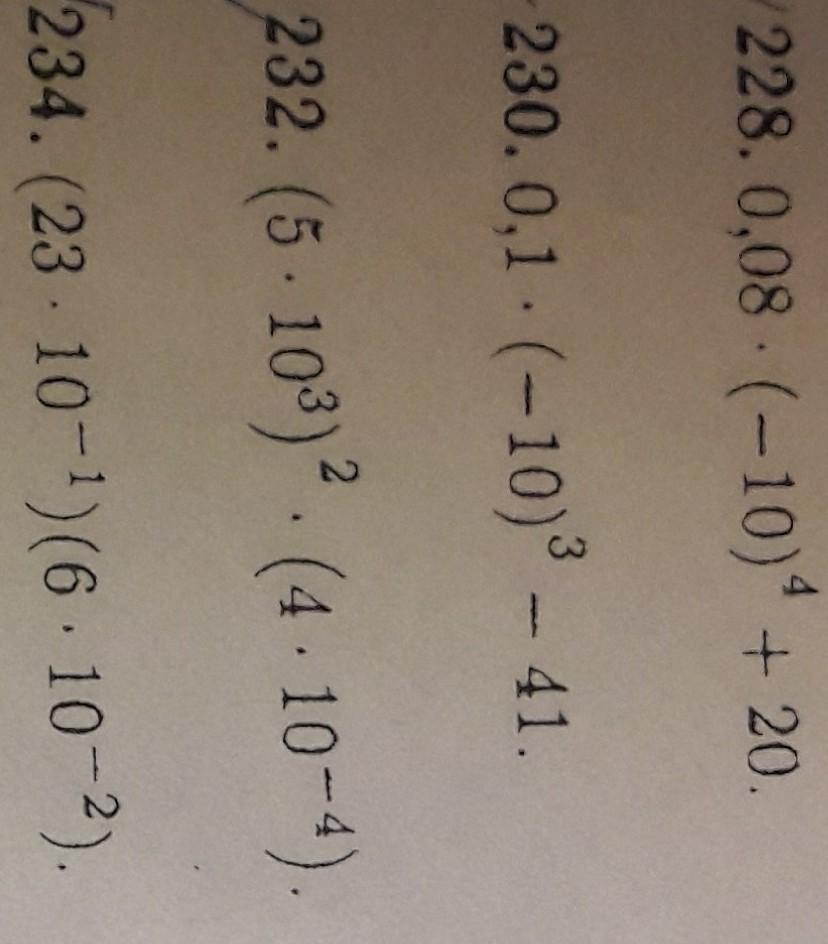 228. 0,08 · (−10)⁴ + 20.
230. 0,1 · (−10)³ − 41.
232. (5 · 10³)² · (4 · 10⁻⁴).
234. (23 · 10⁻¹)(6 · 10⁻²).